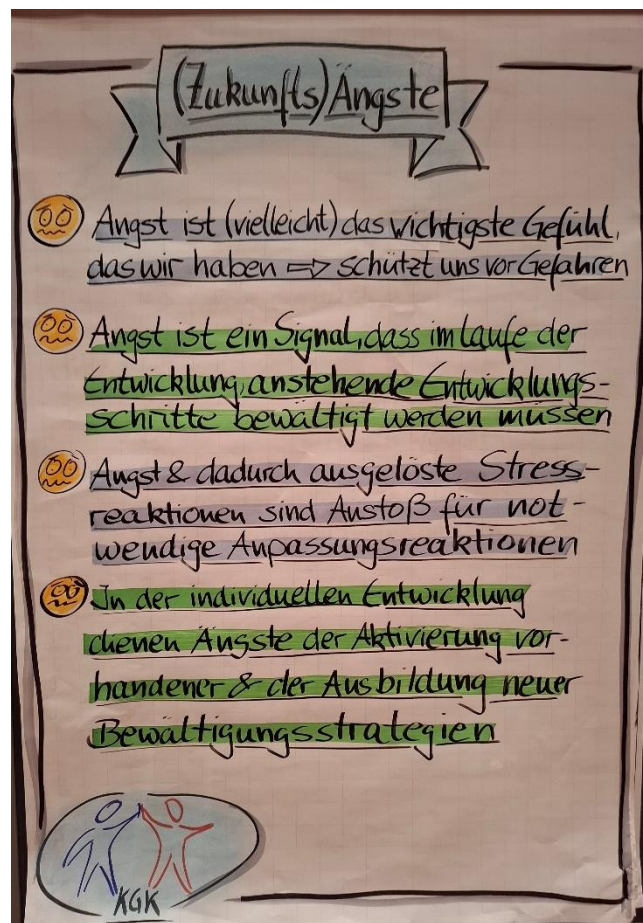 (Zukunfts)Ängste
Angst ist (vielleicht) das wichtigste Gefühl,
das wir haben ⇨ schützt uns vor Gefahren
Angst ist ein Signal, dass im Laufe der
Entwicklung, anstehende Entwicklungs-
schritte bewältigt werden müssen
Angst & dadurch ausgelöste Stress-
reaktionen sind Anstoß für not-
wendige Anpassungsreaktionen
In der individuellen Entwicklung
dienen Ängste der Aktivierung vor-
handener & der Ausbildung neuer
Bewältigungsstrategien
KGK